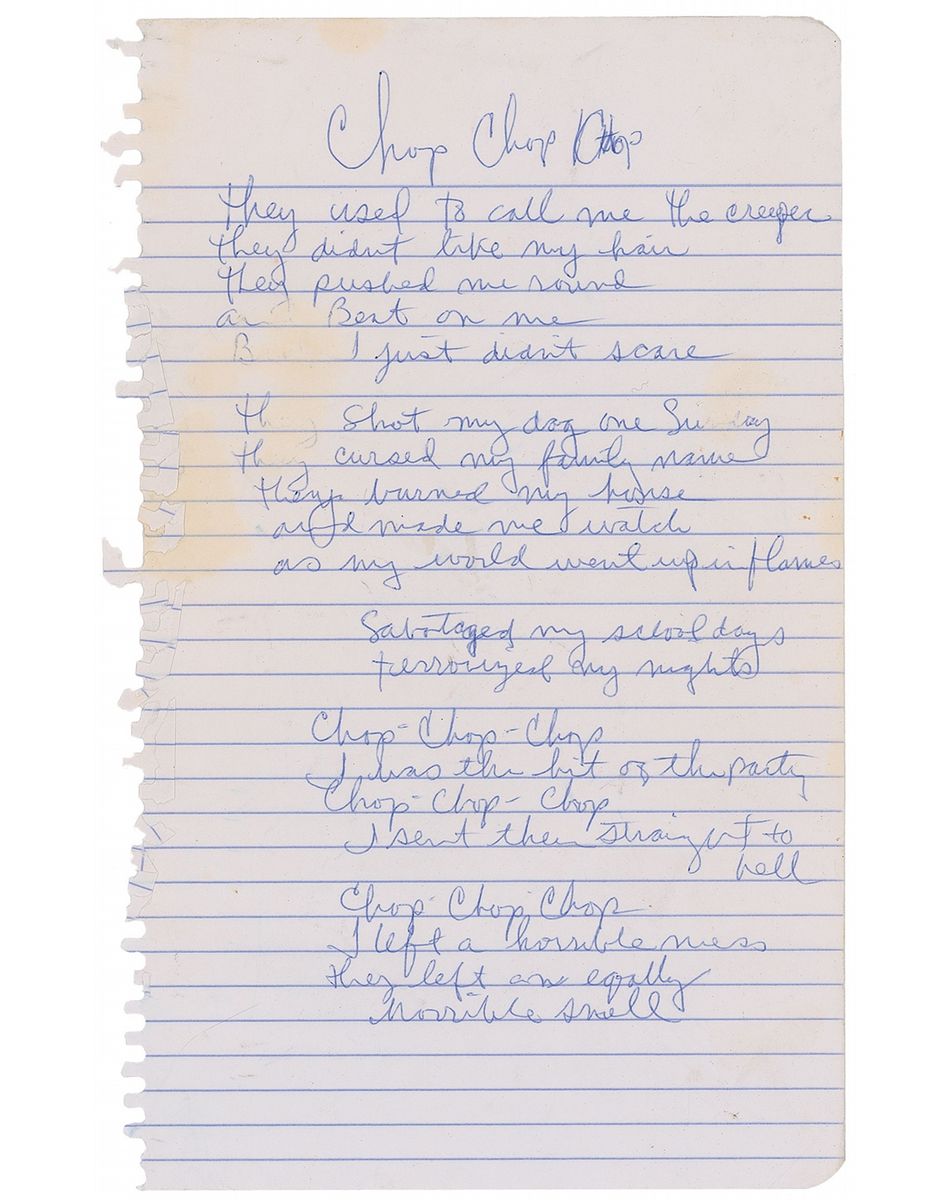 Chop Chop Chop
They used to call me the creeper
they didnt like my hair
they pushed me round
and Beat on me
B I just didn't scare
they shot my dog one Sunday
they cursed my family name
they burned my house
and made me watch
as my world went up in flames
Sabotaged my school days
terrorized my nights
Chop-Chop-Chop
I was the hit of the party
Chop-Chop-Chop
I sent them straight to
hell
Chop Chop Chop
I left a horrible mess
they left an equally
horrible smell